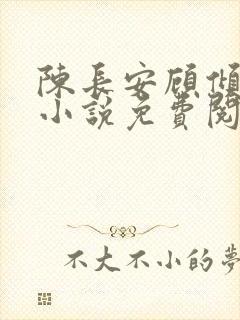 陳長安顧傾
小說免費閱
不大不小的夢